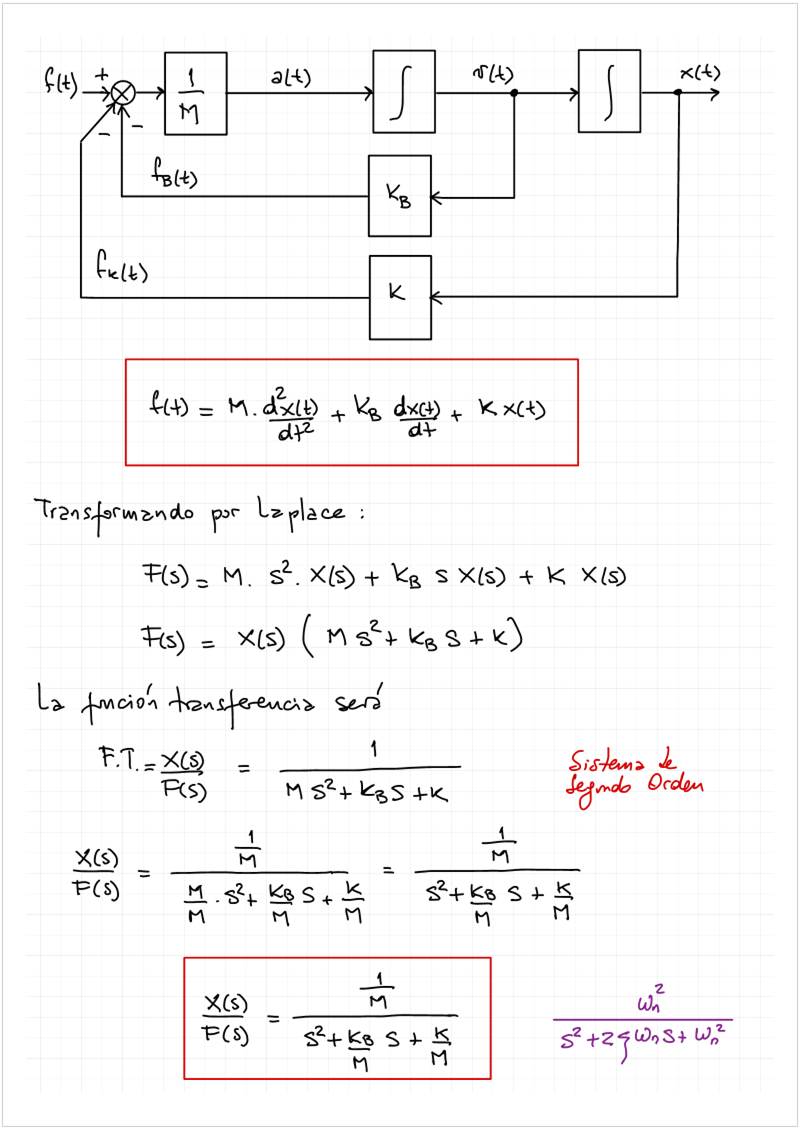 f(t) + 1/M a(t) ∫ v(t) ∫ x(t)
− −
f_B(t) K_B
f_K(t) K
f(t) = M. d²x(t)/dt² + K_B dx(t)/dt + K x(t)
Transformando por Laplace :
F(s) = M. s². X(s) + K_B s X(s) + K X(s)
F(s) = X(s) ( M s² + K_B s + K )
La función transferencia será
F.T. = X(s)/F(s) = 1/(M s² + K_B s + K)
Sistema de
Segundo Orden
X(s)/F(s) = (1/M)/(M/M . s² + K_B/M s + K/M) = (1/M)/(s² + K_B/M s + K/M)
X(s)/F(s) = (1/M)/(s² + K_B/M s + K/M)
ωn²/(s² + 2ξωn s + ωn²)